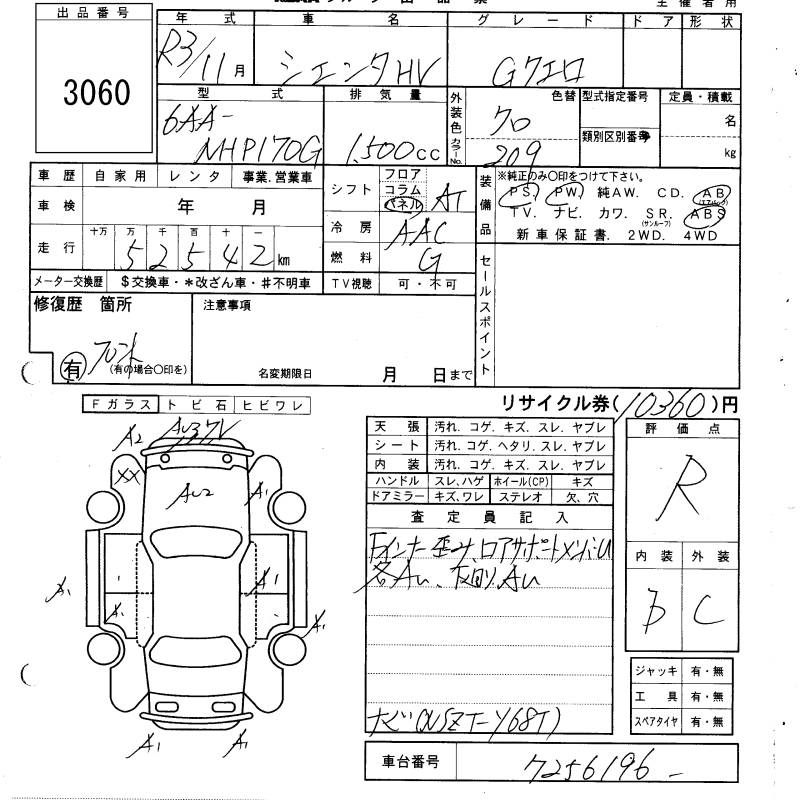 主 催 者 用
出品番号
3060
年 式 車 名 グ レ ー ド ド ア 形 状
R3/11月 シエンタHV Gクエロ
型 式 排 気 量 外装色 カラーNo. 色替 型式指定番号 定員・積載
6AA-
NHP170G 1,500cc クロ 209 類別区別番号 名 kg
車 歴 自 家 用 レ ン タ 事業.営業車
車 検 年 月
走 行 十万 万 千 百 十 一
5 2 5 4 2 km
メーター交換歴 $交換車・*改ざん車・#不明車
シフト フロア コラム パネル AT
冷 房 AAC
燃 料 G
TV視聴 可・不可
装備品 ※純正のみ〇印をつけて下さい。
PS. PW. 純AW. CD. AB(エアバック)
TV. ナビ. カワ. SR.(サンルーフ) ABS
新車保証書. 2WD. 4WD
セールスポイント
修復歴 箇所
有 フロント
(有の場合〇印を)
注意事項
名変期限日 月 日まで
リサイクル券(10360)円
Fガラス トビ石 ヒビワレ
天 張 汚れ. コゲ. キズ. スレ. ヤブレ
シート 汚れ. コゲ. ヘタリ. スレ. ヤブレ
内 装 汚れ. コゲ. キズ. スレ. ヤブレ
ハンドル スレ、ハゲ ホイール(CP) キズ
ドアミラー キズ、ワレ ステレオ 欠、穴
評 価 点
R
内 装 外 装
B C
査 定 員 記 入
Fインナー歪み、ロアサポートメンバーU
各AU、
ナビ(NSZT-Y68T)
A2
XX
AU2
A1
A1
A1
A1
A1
A1
A1
A1
ジャッキ 有・無
工 具 有・無
スペアタイヤ 有・無
車台番号 7256196